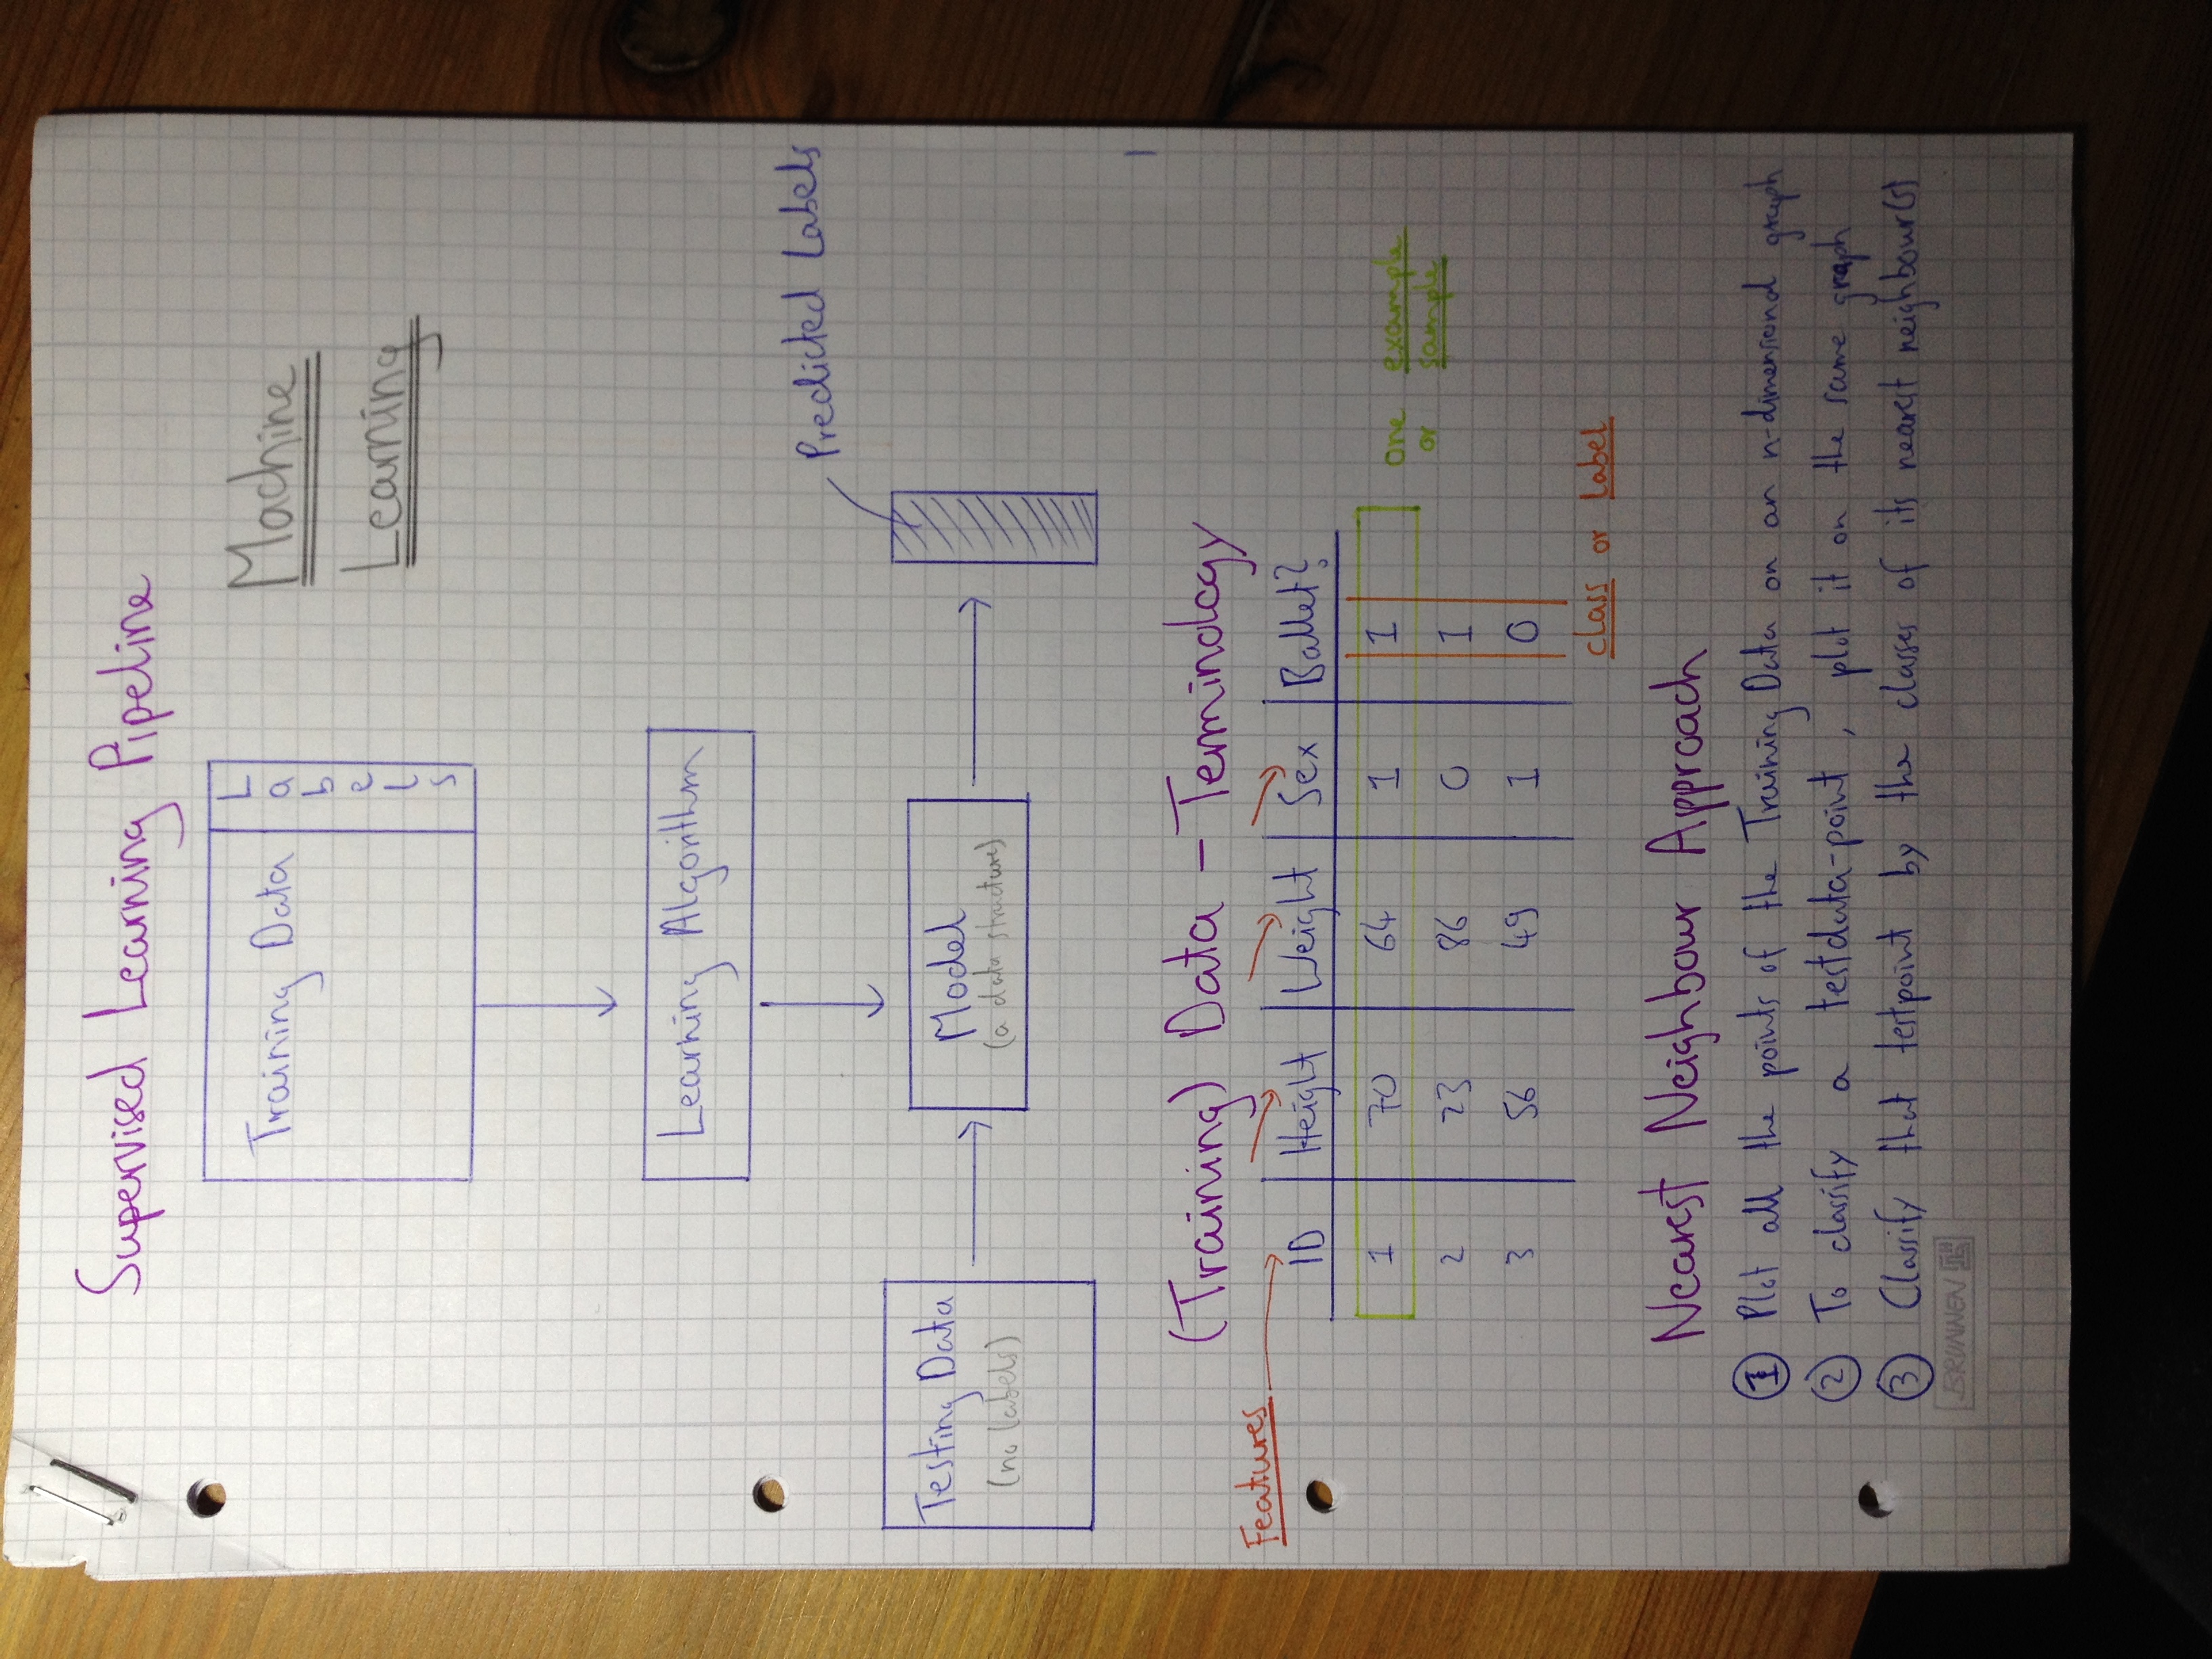 Supervised Learning Pipeline
Training Data
Labels
Machine
Learning
Learning Algorithm
Predicted Labels
Testing Data
(no labels)
Model
(a data structure)
(Training) Data - Terminology
Features
ID Height Weight Sex Ballet?
1 70 64 1 1
one example
or sample
2 23 86 0 1
3 56 49 1 0
class or label
Nearest Neighbour Approach
1 Plot all the points of the Training Data on an n-dimensional graph
2 To classify a testdata-point, plot it on the same graph
3 Classify that testpoint by the classes of its nearest neighbour(s)
BRUNNEN